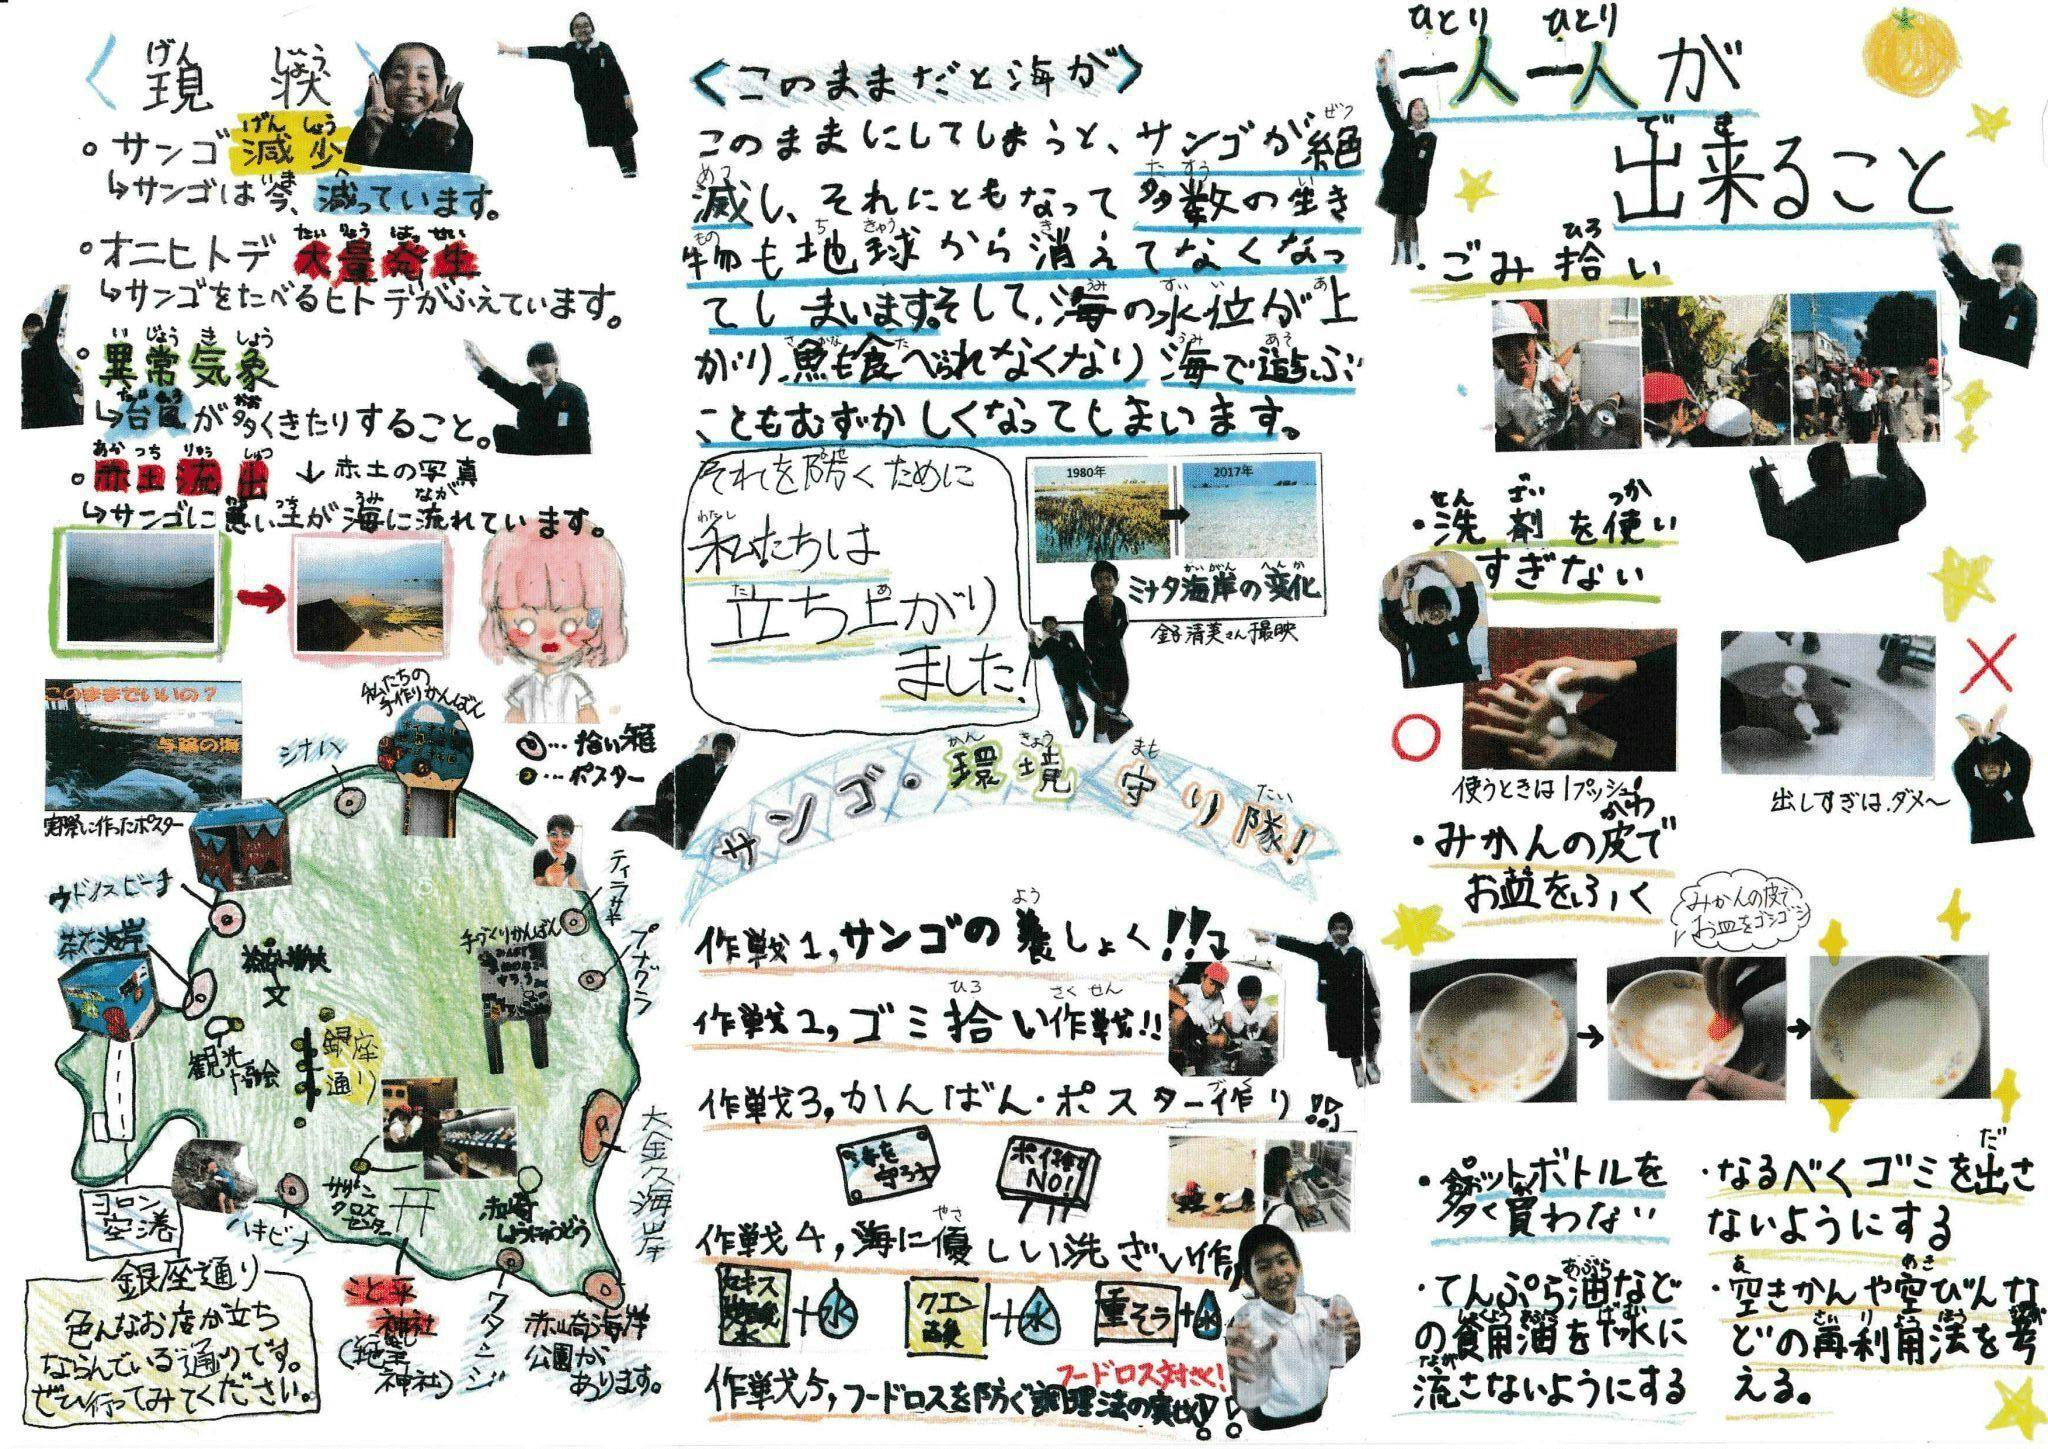 〈現状〉
げん じょう
・サンゴ減少
げん しょう
↳サンゴは今、減っています。
いま
・オニヒトデ大量発生
たい りょう はっ せい
↳サンゴをたべるヒトデがふえています。
・異常気象
い じょう き しょう
↳台風が多くきたりすること。
・赤土流出
あか つち りゅう しゅつ
↓赤土の写真
↳サンゴに悪い土が海に流れています。
このままでいいの?
与論の海
実際に作ったポスター
私たちの
手作りかんばん
…拾い箱
…ポスター
シナハ
ウドノスビーチ
茶花海岸
ティラサキ
プナグラ
手づくりかんばん
文
観光協会
銀座
通り
大金久海岸
ヨロン
空港
ハキビナ
サザンクロスセンター
赤崎
しょうにゅうどう
こと平
神社
神社)
ワタンジ
赤崎海岸
公園が
あります。
銀座通り
色んなお店が立ち
ならんでいる通りです。
ぜひ行ってみてください。
〈このままだと海が〉
このままにしてしまうと、サンゴが絶
滅し、それにともなって多数の生き
物も地球から消えてなくなっ
てしまいます。そして、海の水位が上
がり、魚も食べられなくなり海で遊ぶ
こともむずかしくなってしまいます。
それを防ぐために
私たちは
立ち上がり
ました!
1980年
2017年
ミナタ海岸の変化
金子清美さん撮映
サンゴ・環境守り隊!
作戦1,サンゴの養しょく!!
作戦2,ゴミ拾い作戦!!
作戦3,かんばん・ポスター作り!!
海を
守ろう
ポイ捨て
NO!
作戦4,海に優しい洗ざい作り
水
クエン酸
水
重そう
水
フードロス対さく!
作戦5,フードロスを防ぐ調理法の実せん!!
一人一人が
ひとり ひとり
出来ること
で き
・ごみ拾い
ひろ
・洗剤を使い
せん ざい つか
すぎない
使うときは1プッシュ
出しすぎは、ダメ〜
・みかんの皮で
かわ
お皿をふく
みかんの皮で
お皿をゴシゴシ
・ペットボトルを
多く買わない
・なるべくゴミを出さ
ないようにする
・てんぷら油など
の食用油を下水に
流さないようにする
・空きかんや空びんな
どの再利用法を考
える。